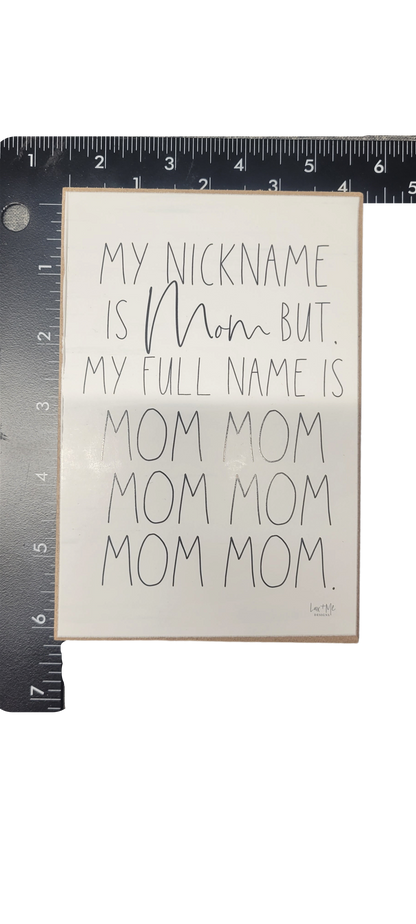 1 2 3 4 5 6
1 2 3 4 5
1
2
3
4
5
6
7
MY NICKNAME
IS Mom BUT.
MY FULL NAME IS
MOM MOM
MOM MOM
MOM MOM.